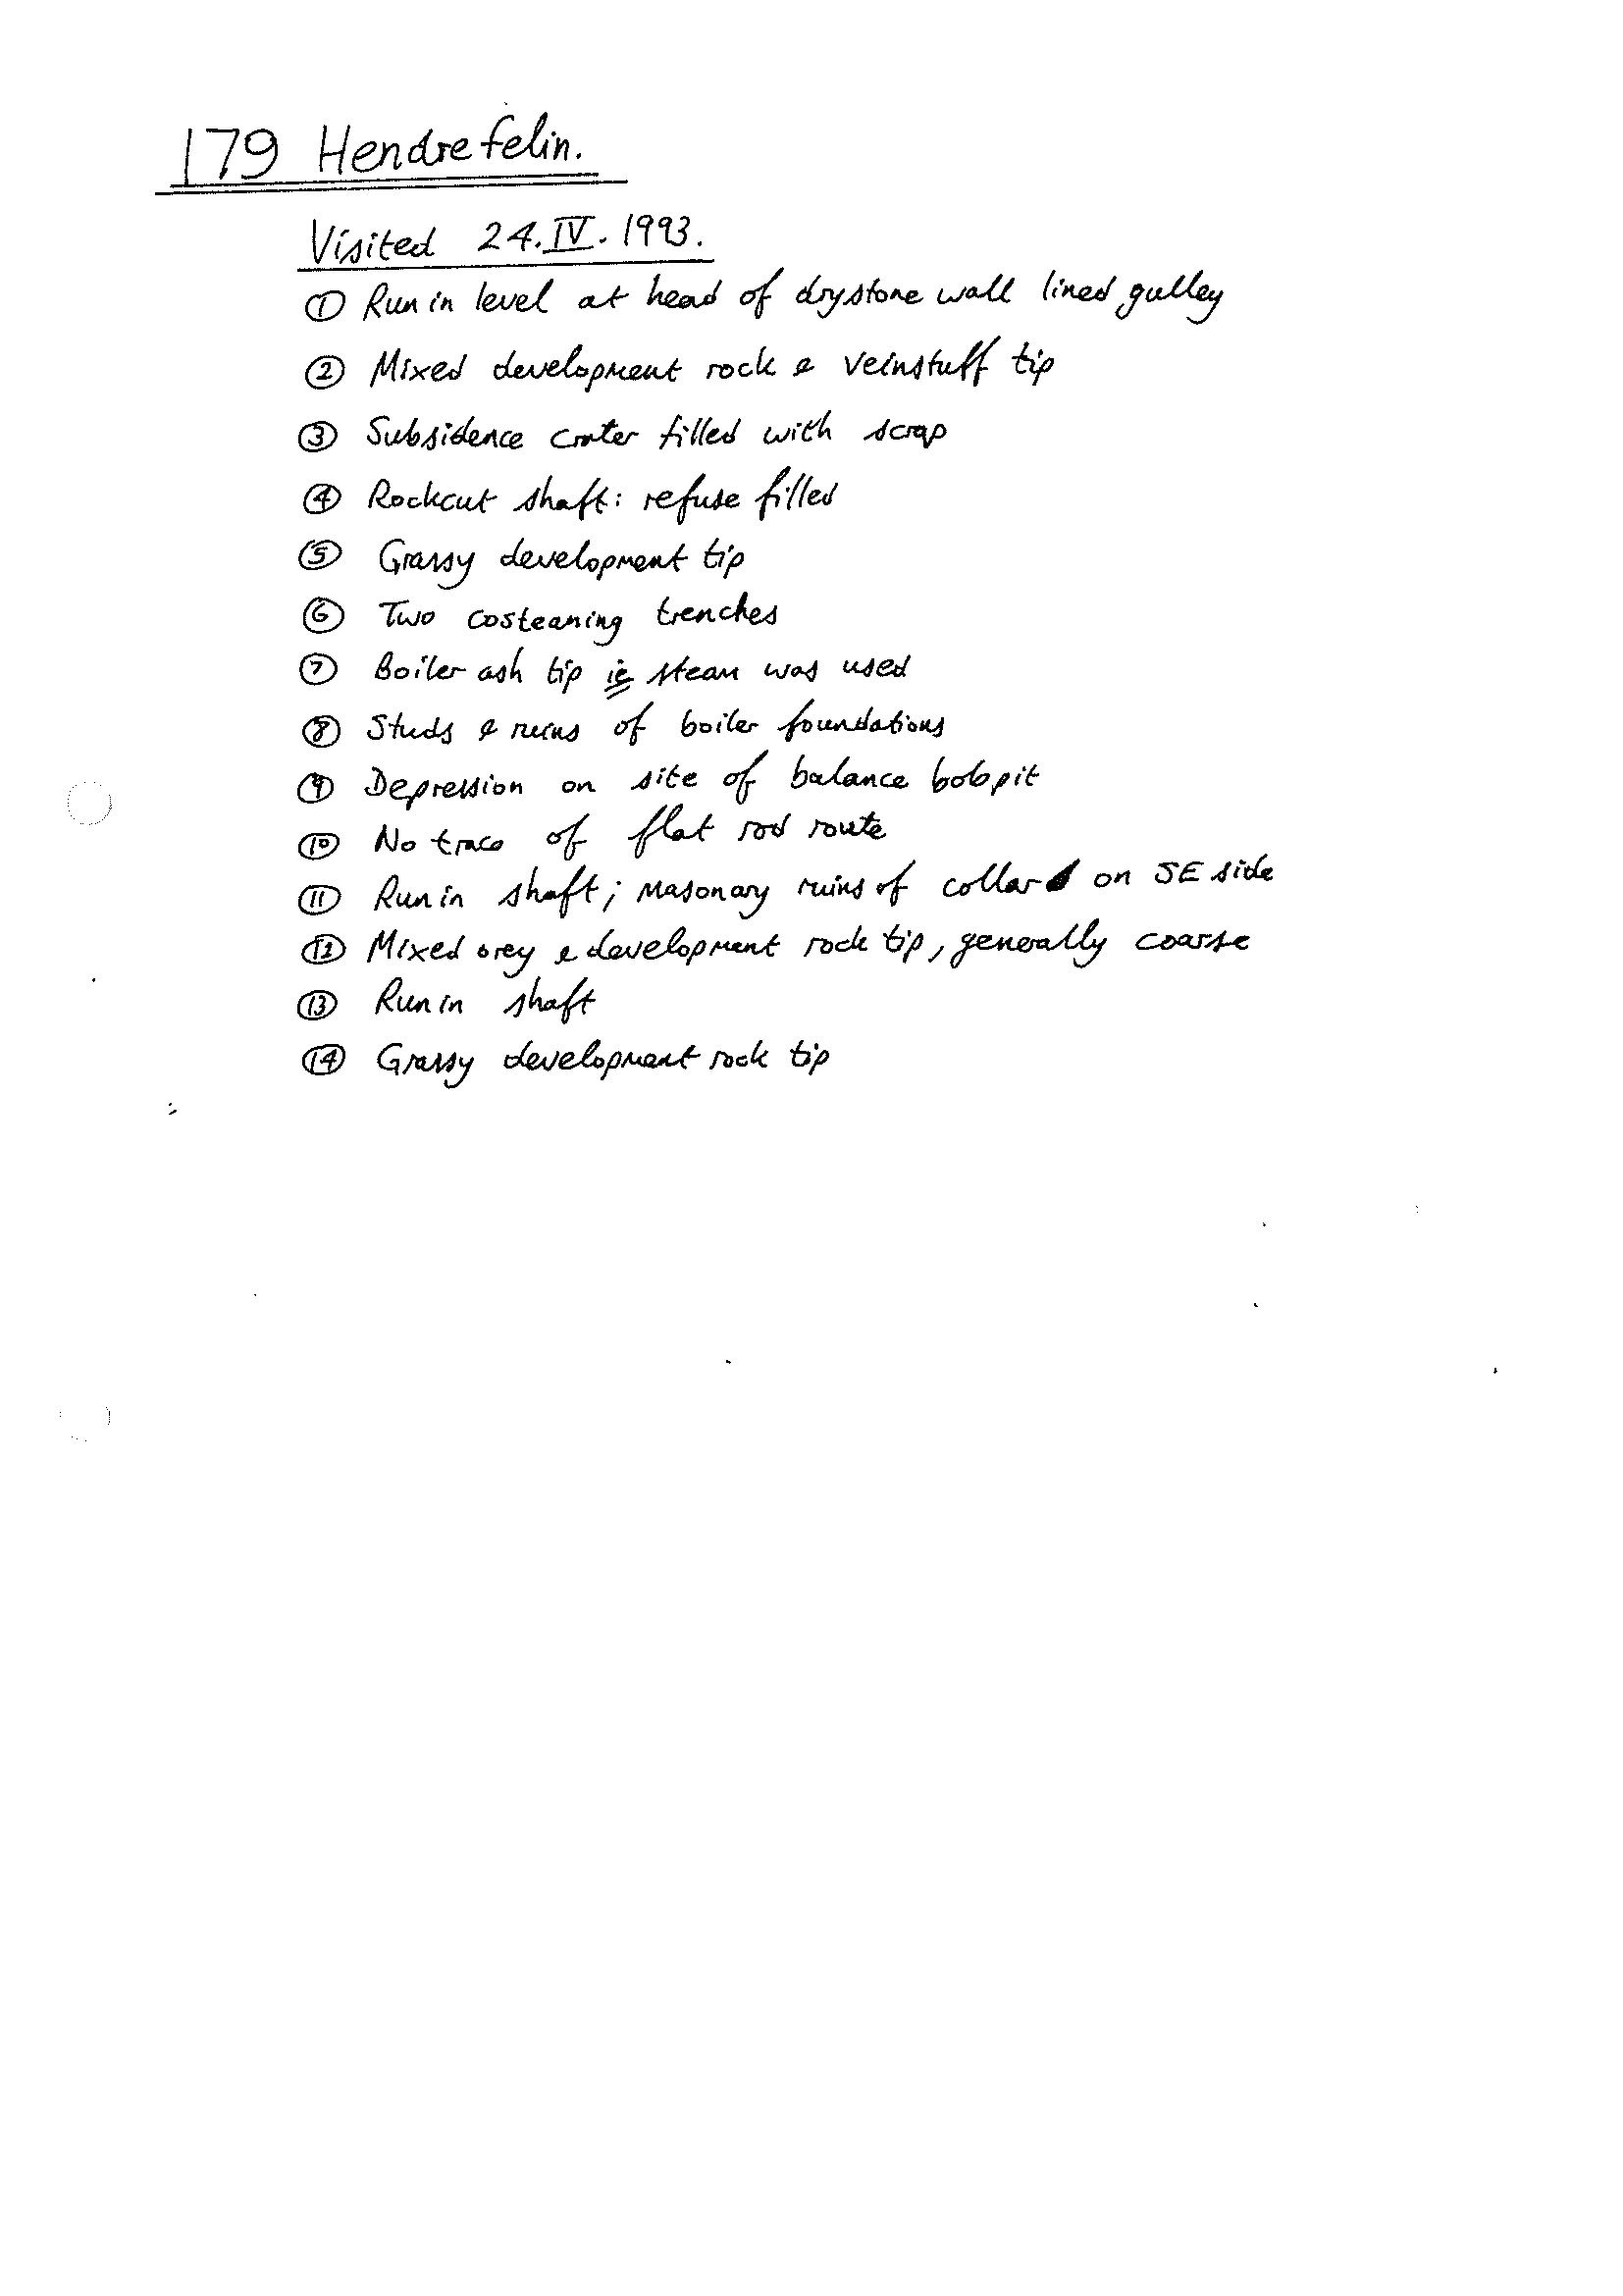 179 Hendrefelin.
Visited 24.IV.1993.
① Run in level at head of drystone wall lined gulley
② Mixed development rock & veinstuff tip
③ Subsidence crater filled with scrap
④ Rockcut shaft: refuse filled
⑤ Grassy development tip
⑥ Two costeaning trenches
⑦ Boiler ash tip ie steam was used
⑧ Studs & ruins of boiler foundations
⑨ Depression on site of balance bob pit
⑩ No trace of flat rod route
⑪ Run in shaft; masonary ruins of collar on SE side
⑫ Mixed orey & development rock tip, generally coarse
⑬ Run in shaft
⑭ Grassy development rock tip